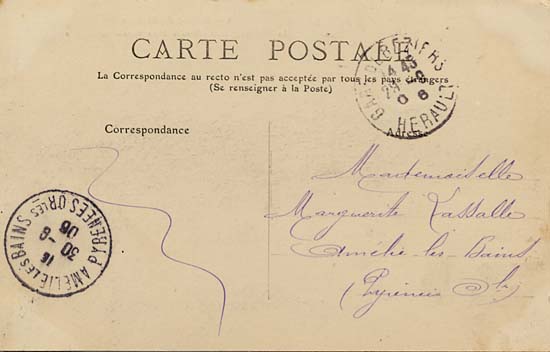 CARTE POSTALE
La Correspondance au recto n'est pas acceptée par tous les pays étrangers
(Se renseigner à la Poste)
GARE DE BEZIERS
HERAULT
Correspondance
Mademoiselle
Marguerite Lassalle
Amélie-les-Bains
(Pyrénées Or
AMELIE-LES-BAINS
PYRENEES ORLES
16
30 -8
06